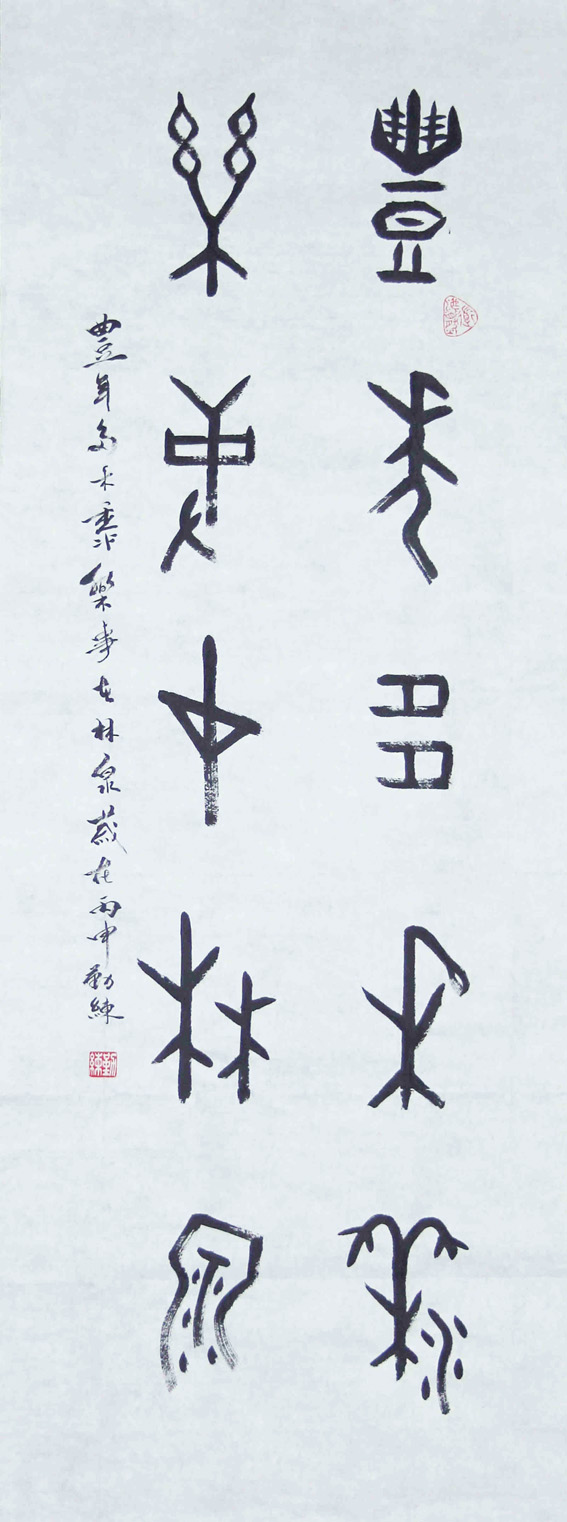 豐年多禾黍
樂事在林泉
豐年多禾黍樂事在林泉歲在丙申勤練
勤練